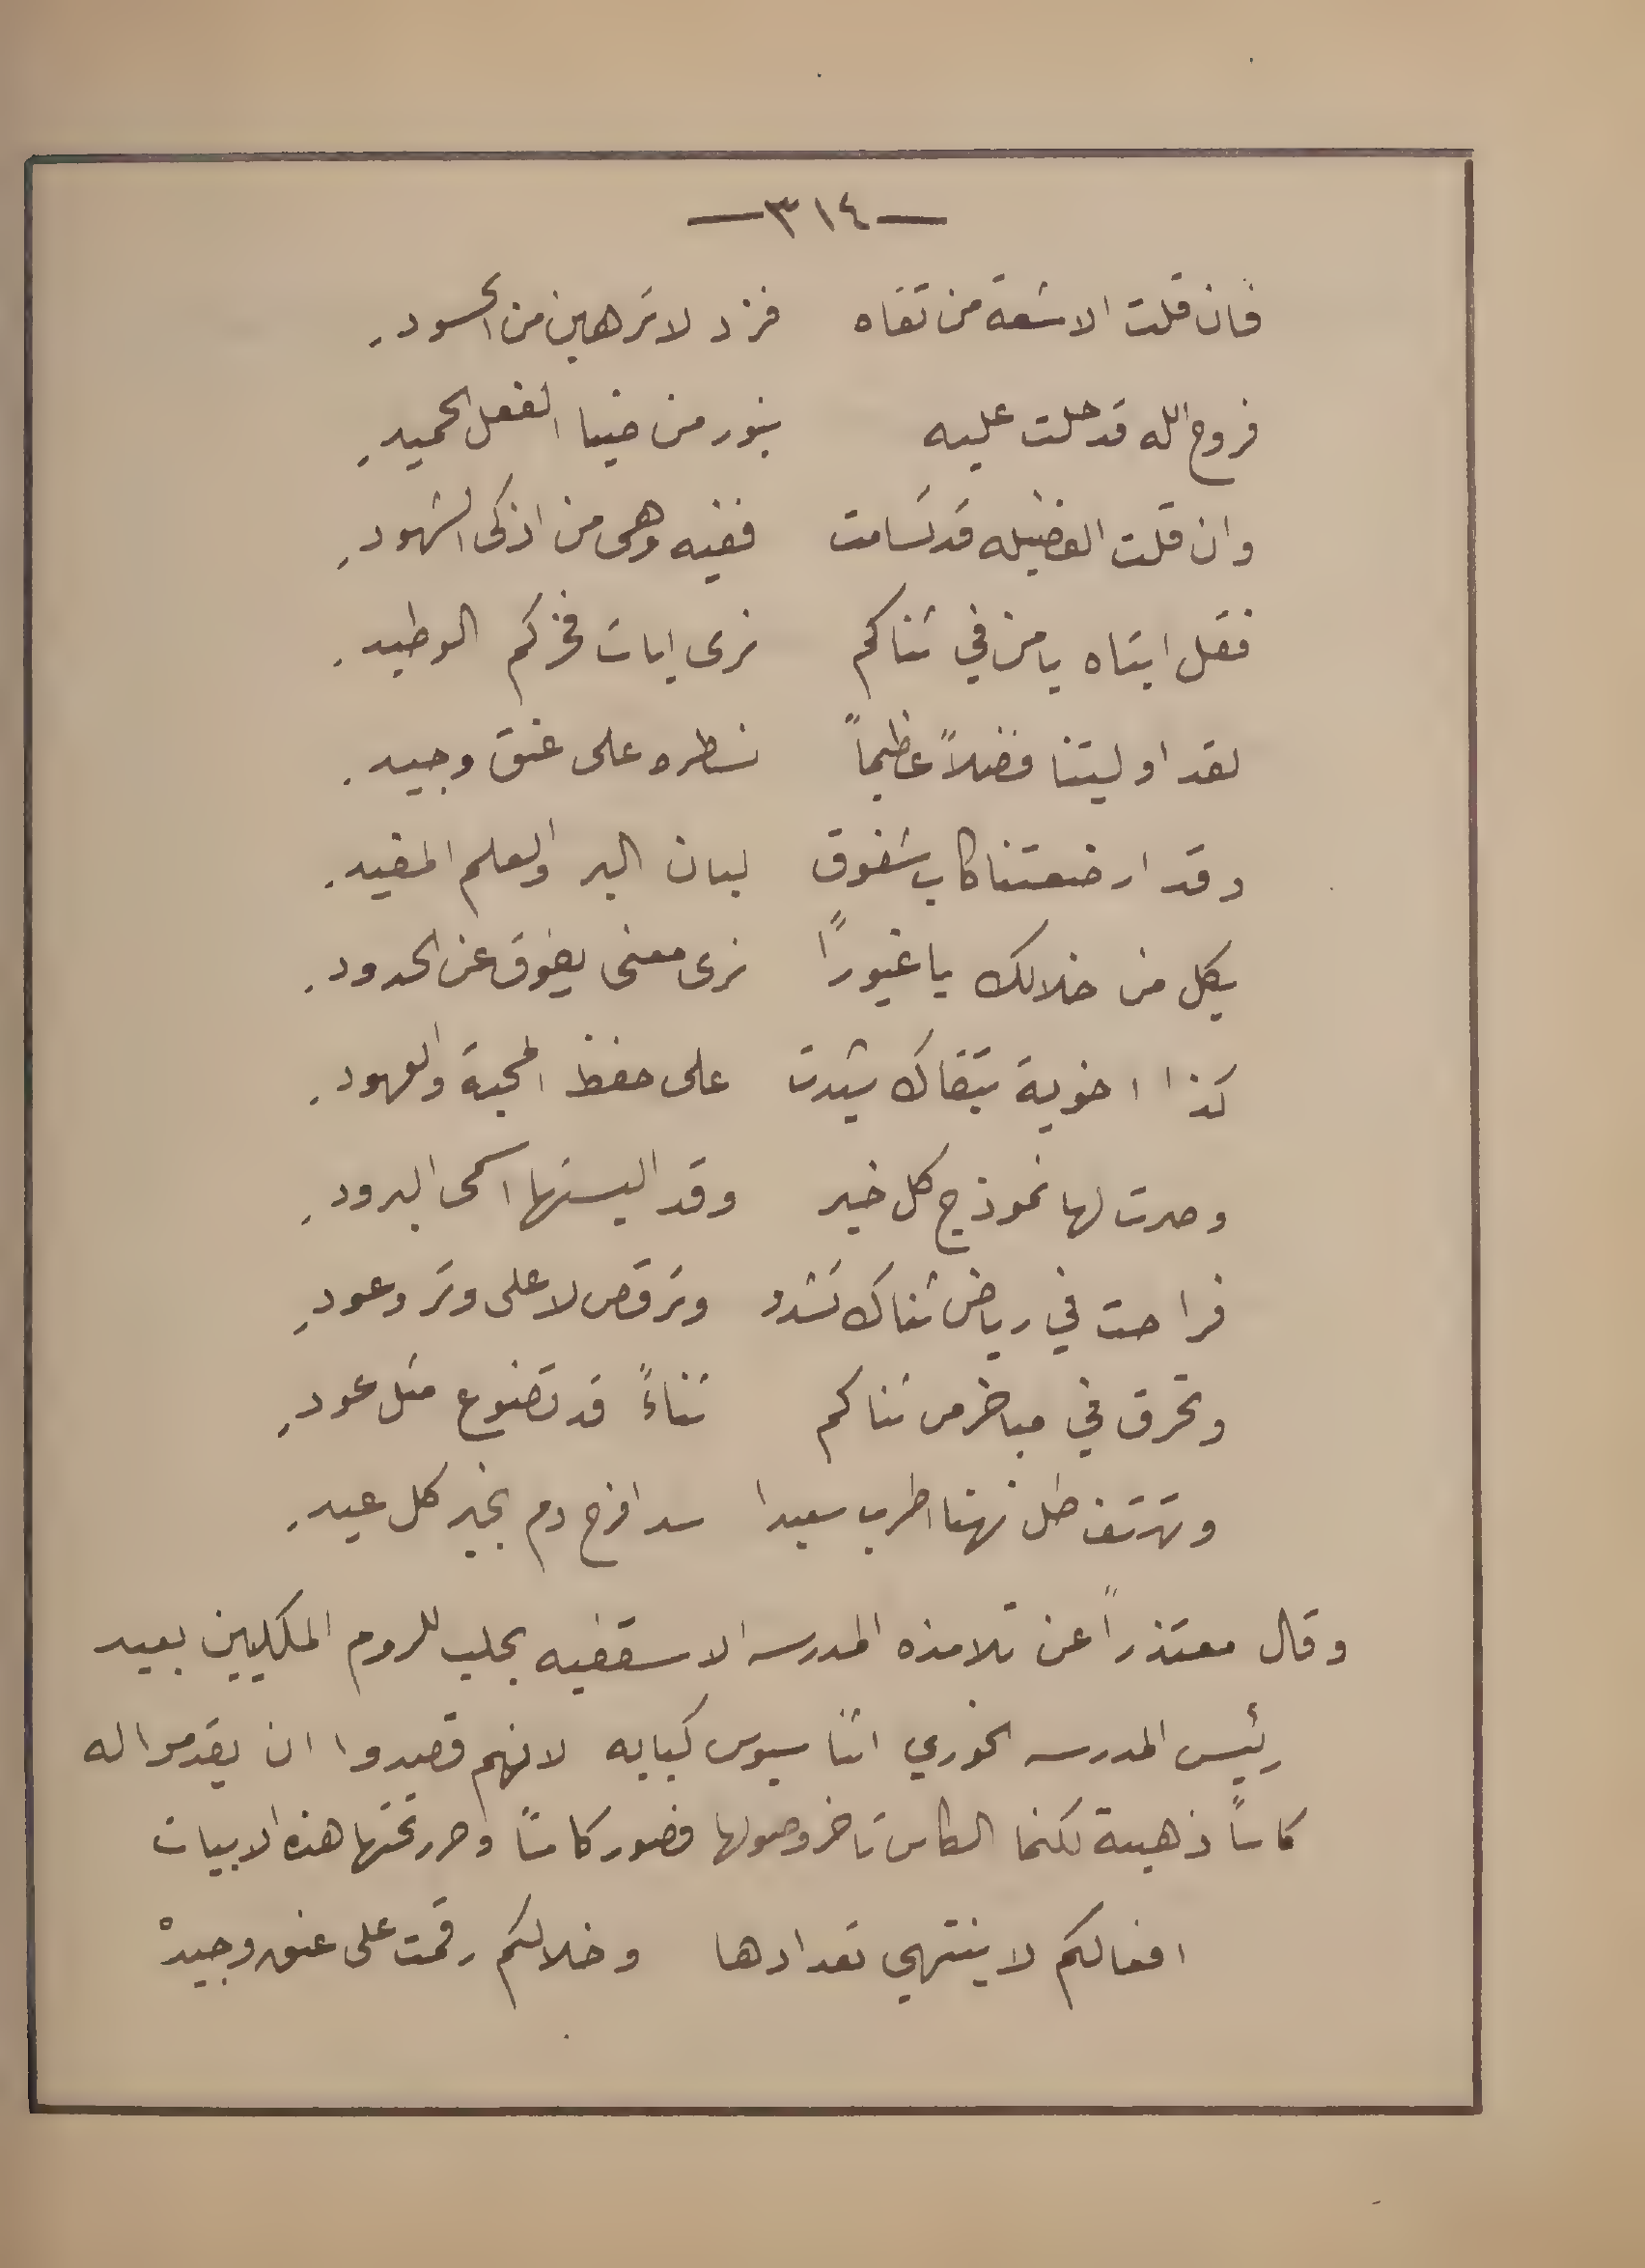 —٣١٤—
فان قلت الاشعة من تقاه فزد لا ترهبن من الحسود.
فروح الله قد حلت عليه بنور من ضيا الفعل الحميدِ
وان قلت الفضيله قد تسامت ففيه وهى من اذكى الشهودِ
فقل ابتاه يا من في ثناكم نرى ايات فخركم الوطيد.
لقد اوليتنا فضلاً عظيماً نسطره على عنق وجيد.
وقد ارضعتنا كاب شفوق لبان البر والعلم المفيد.
بكل من خلالك يا غيوراً نرى معنى يفوق عن الحدود.
كذا اخوية بتقاك شيدت على حفظ المحبة والعهود.
وصرت لها نموذج كل خير وقد البستها اسمى البرودِ
فراحت في رياض ثناك تشدو وترقص لا على وتر وعودِ
وتحرق في مباخر من ثناكم ثناءً قد تضوع مثل عودِ
وتهتف ظل نهنا اطرب سعيدا سد افرح دم بخير كل عيد.
وقال معتذراً عن تلامذه المدرسه الاسقفيه بحلب للروم الملكيين بعيد
رئيس المدرسه الخوري اثناسيوس كبابه لانهم قصدوا ان يقدموا له
كاساً ذهبية لكنما الكاس تاخر وصولها فصور كاساً وحرر تحتها هذه الابيات
افعالكم لا ينتهي تعدادها وخلالكم رقمت على عنق وجيدْ